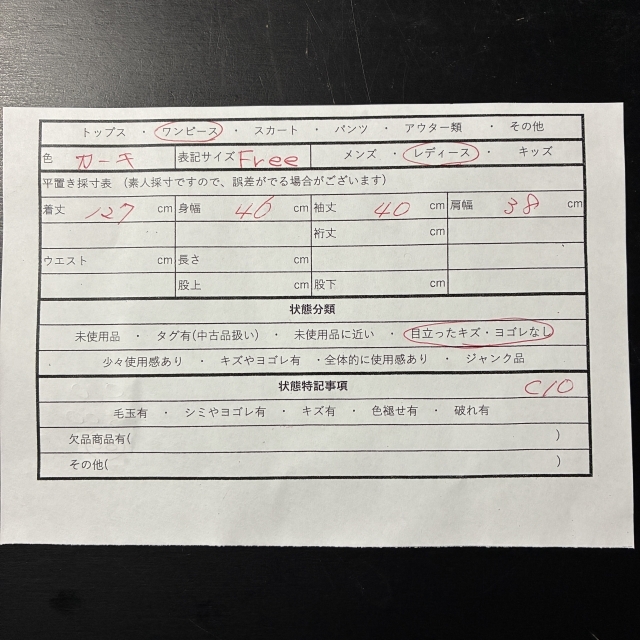 トップス ・ ワンピース ・ スカート ・ パンツ ・ アウター類 ・ その他
色 カーキ 表記サイズ Free メンズ ・ レディース ・ キッズ
平置き採寸表 (素人採寸ですので、誤差がでる場合がございます)
着丈 127 cm 身幅 46 cm 袖丈 40 cm 肩幅 38 cm
裄丈 cm
ウエスト cm 長さ cm
股上 cm 股下 cm
状態分類
未使用品 ・ タグ有(中古品扱い) ・ 未使用品に近い ・ 目立ったキズ・ヨゴレなし
少々使用感あり ・ キズやヨゴレ有 ・全体的に使用感あり ・ ジャンク品
状態特記事項 C10
毛玉有 ・ シミやヨゴレ有 ・ キズ有 ・ 色褪せ有 ・ 破れ有
欠品商品有( )
その他( )